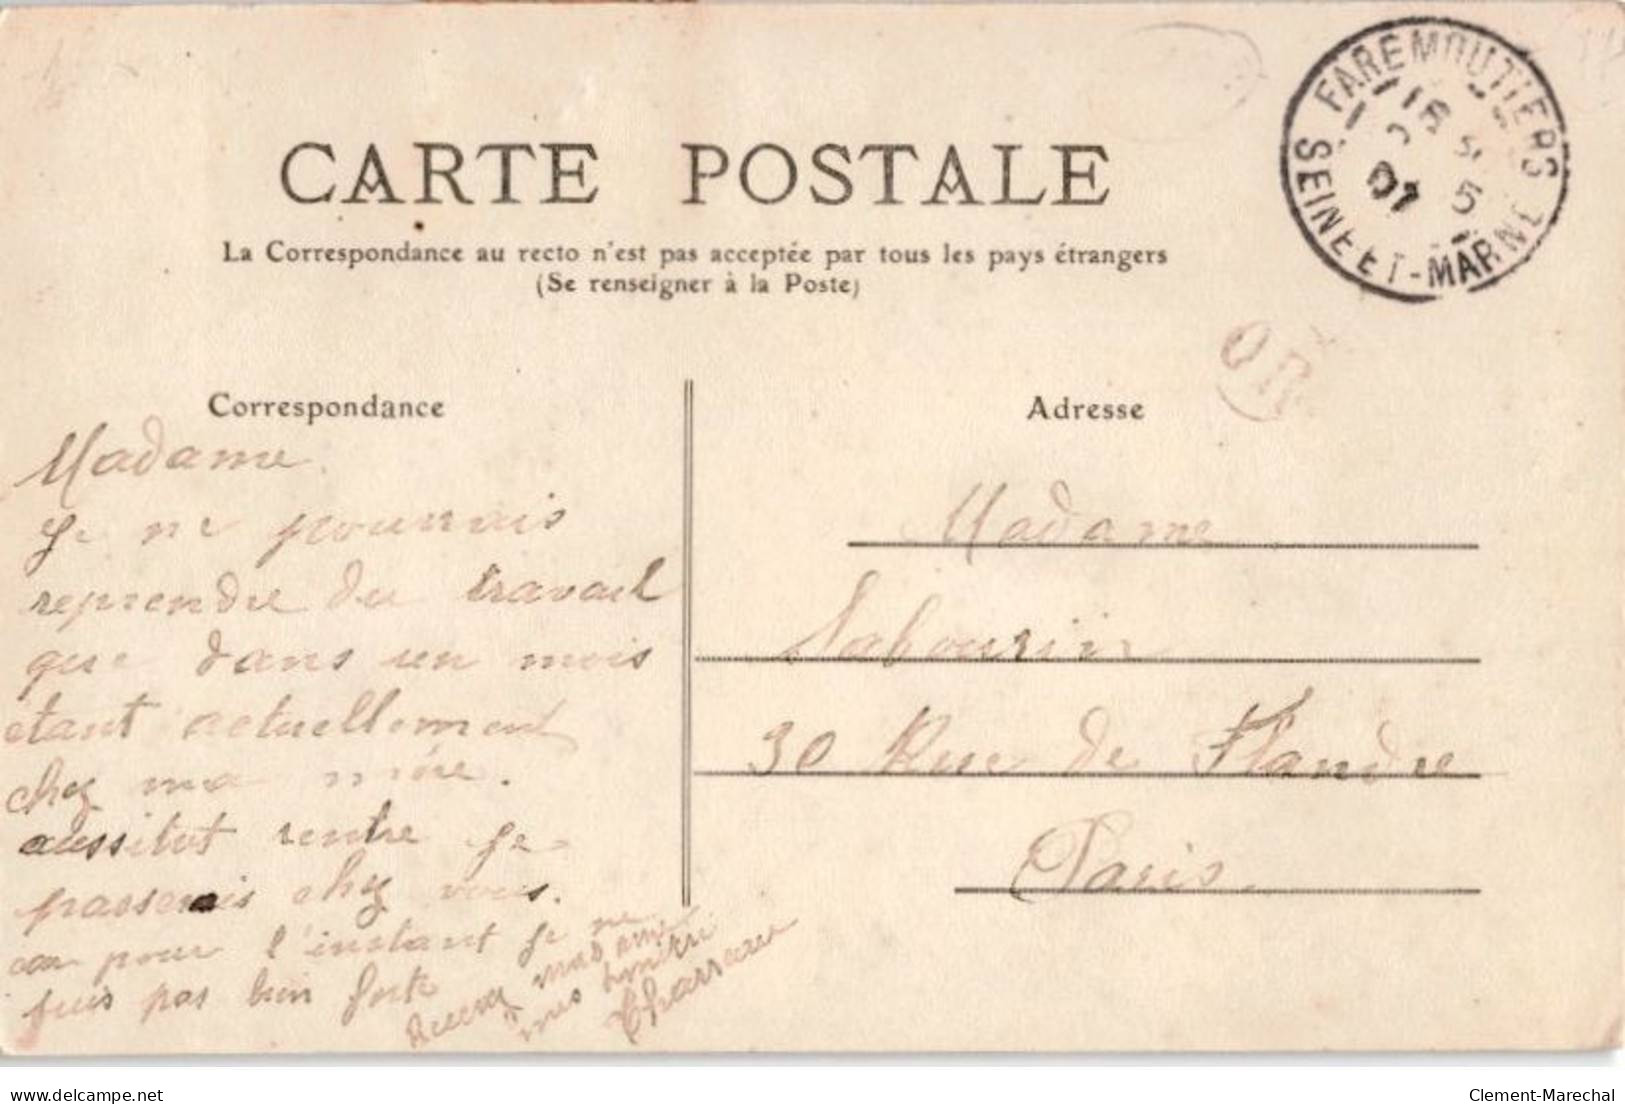 CARTE POSTALE
La Correspondance au recto n'est pas acceptée par tous les pays étrangers
(Se renseigner à la Poste)
FAREMOUTIERS
SEINE ET-MARNE
07
OR
Correspondance
Madame
Je ne pourrais
reprendre du travail
que dans un mois
etant actuellement
chez ma mére.
aussitot rentre je
passerais chez vous.
car pour l'instant je ne
suis pas bien forte
Recevez madame
mes
Charreau
Adresse
Madame
Labourin
30 Rue de Flandre
Paris.
delcampe.net
Clement-Marechal